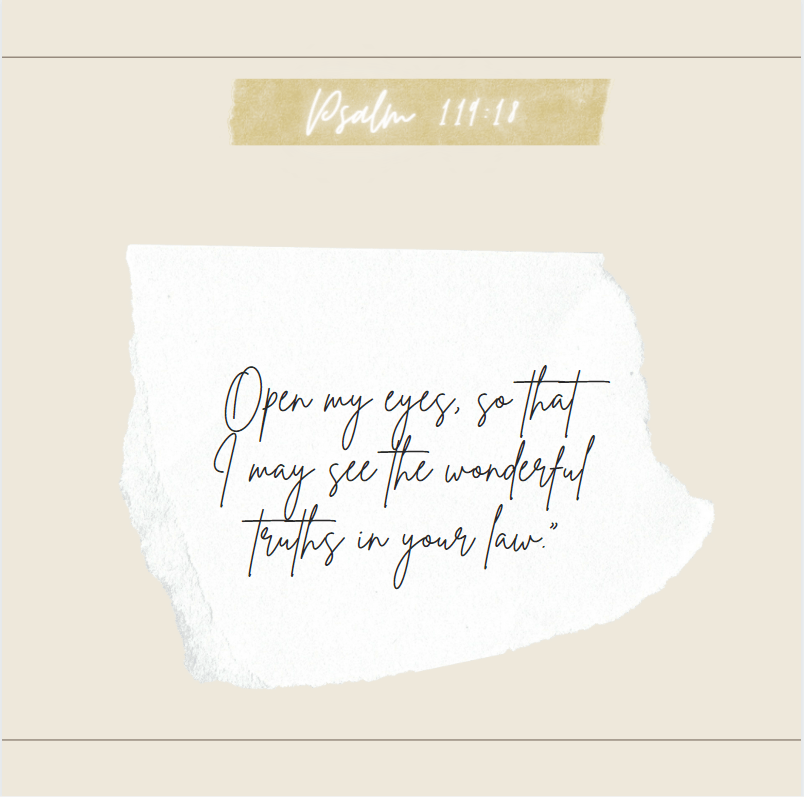 Psalm 119:18
Open my eyes, so that
I may see the wonderful
truths in your law.”